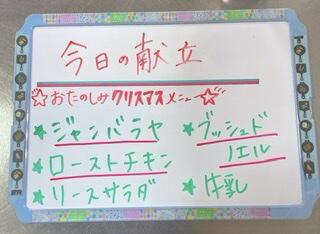 今日の献立
☆おたのしみクリスマスメニュー☆
★ジャンバラヤ
★ローストチキン
★リースサラダ
★ブッシュド
ノエル
★牛乳